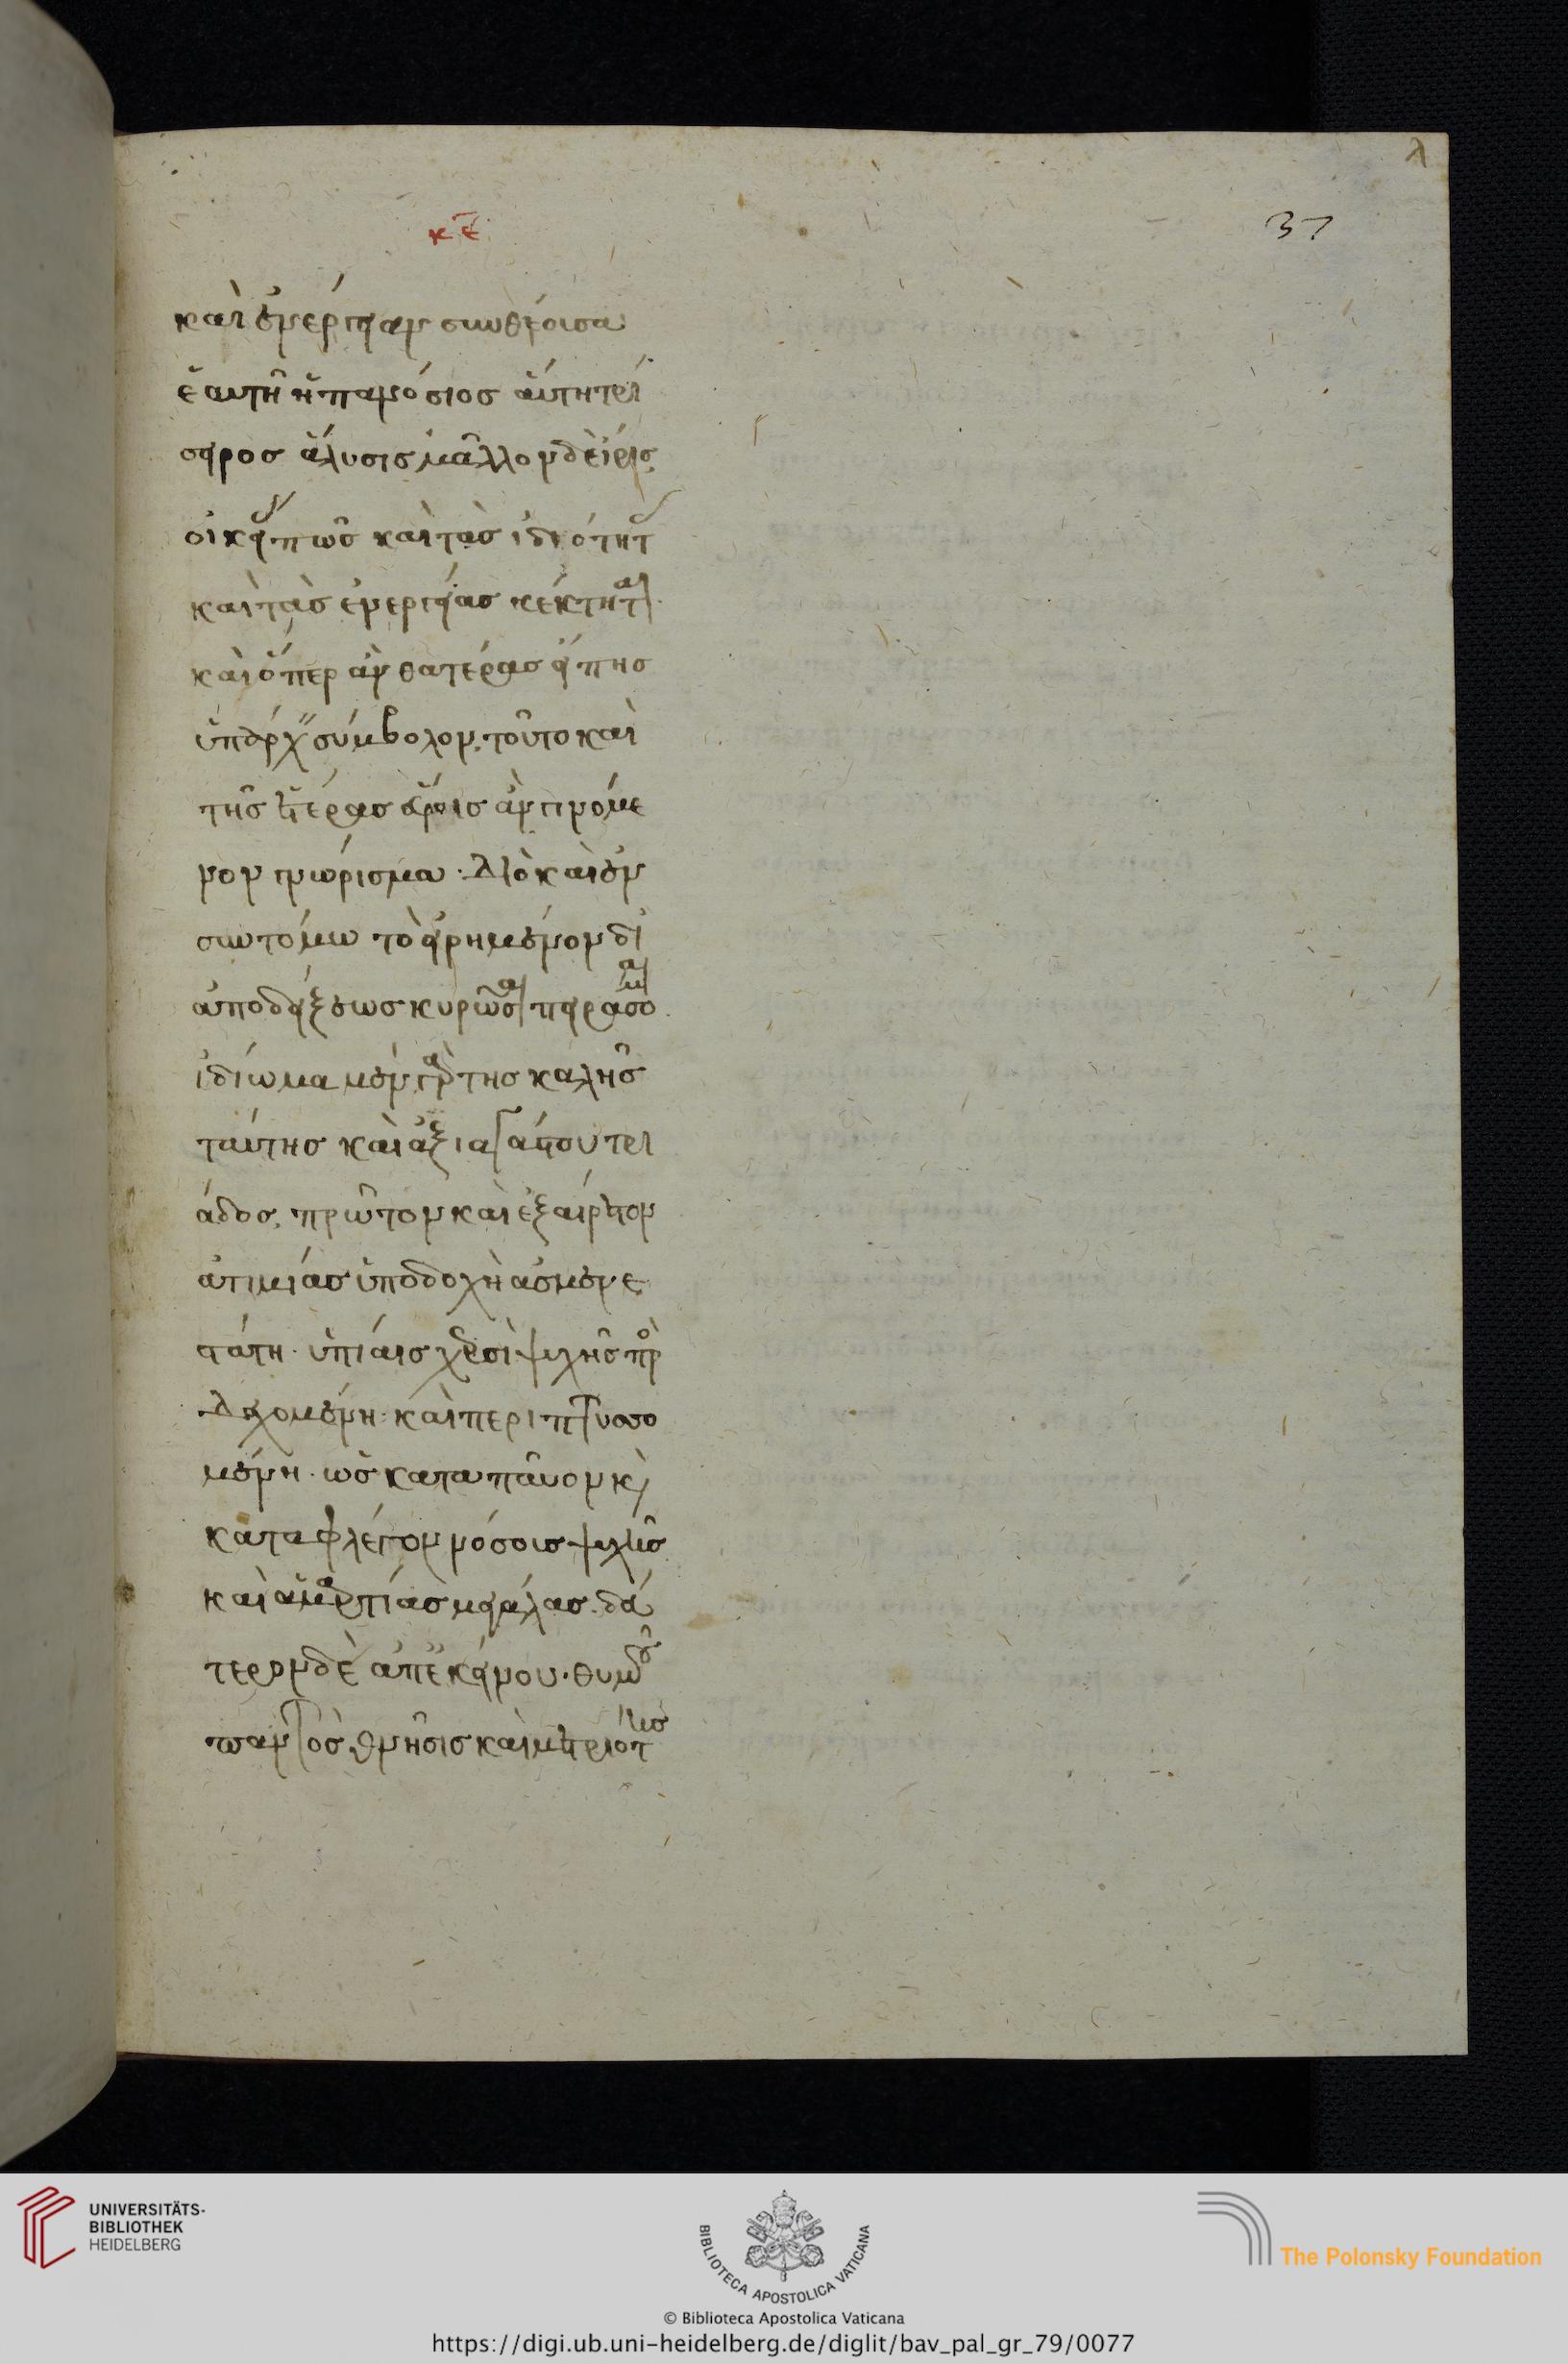 λ
κε
37
καὶ ἐνέργειαν συνθέουσα
ἑαυτῆ ἡ πανόσιος αὕτη τρί
σειρος ἅλυσις μᾶλλον δὲ ἶρις
οἰκείως πως καὶ τὰς ἰδιότητ
καὶ τὰς ἐνεργείας κέκτηται
καὶ ὅπερ ἂν θατέρας εἴπης
ὑπάρχειν σύμβολον, τοῦτο καὶ
τῆς ἑτέρας
νον γνώρισμα · Διὸ καὶ ἐν
συντόμω τὸ εἰρημένον δι
ἀποδείξεως κυρῶσαι πειράσομαι
ἰδίωμα μὲν γὰρ τῆς καλῆς
ταύτης καὶ ἀξιαγάστου τρι
άδος, πρῶτον καὶ ἐξαίρετον
ἀτιμίας ὑποδοχὴ ἀσμενε
στάτη · ὑπτίαις χερσὶ ψυχῆς προσ
δεχομένη · καὶ περιπτυσσο
μένη · ὡς καταπαῦον καὶ
καταφλέγον νόσους ψυχῆς
καὶ ἁμαρτίας μεγάλας · δεύ
τερον δὲ ἀπ' ἐκείνου · θυμοῦ
παντὸς θνῆσις καὶ μετριότης
UNIVERSITÄTS-
BIBLIOTHEK
HEIDELBERG
BIBLIOTECA APOSTOLICA VATICANA
The Polonsky Foundation
© Biblioteca Apostolica Vaticana
https://digi.ub.uni-heidelberg.de/diglit/bav_pal_gr_79/0077